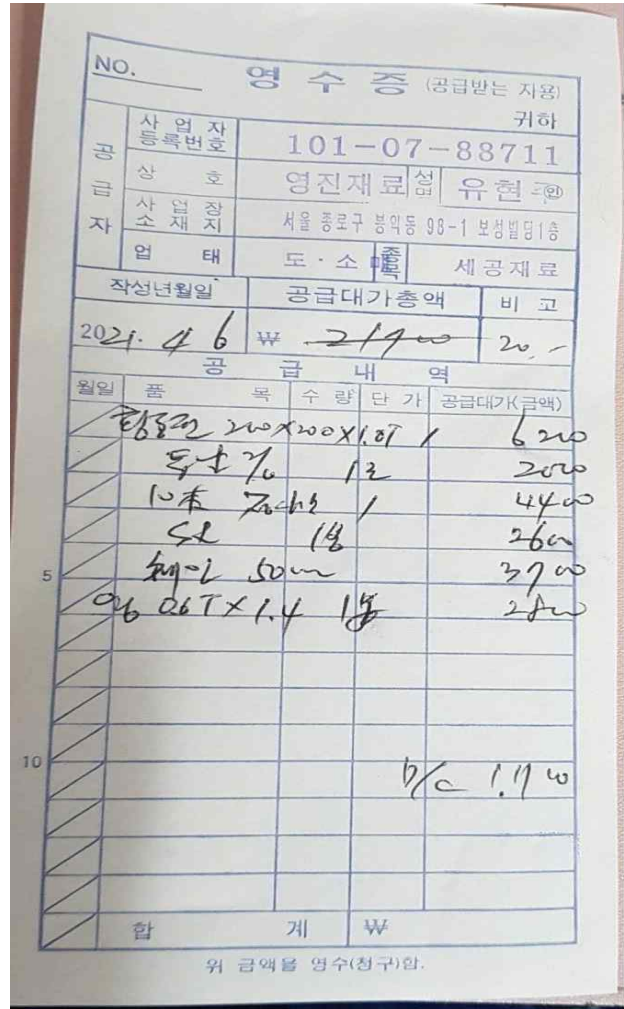 NO.
영 수 증 (공급받는 자용)
귀하
공급자
사업자등록번호 101-07-88711
상 호 영진재료 성명 유현
사업장소재지 서울 종로구 봉익동 98-1 보성빌딩1층
업 태 도·소매 종목 세공재료
작성년월일 공급대가총액 비 고
2021. 4 6 ₩ 21700 20,-
공 급 내 역
월일 품 목 수 량 단 가 공급대가(금액)
200x200x1.0T 1 6200
2000
1 4400
1봉 2600
체인 50cm 3700
5
0.6T x 1.4 1봉 2800
10
D/C 1,700
합 계 ₩
위 금액을 영수(청구)함.